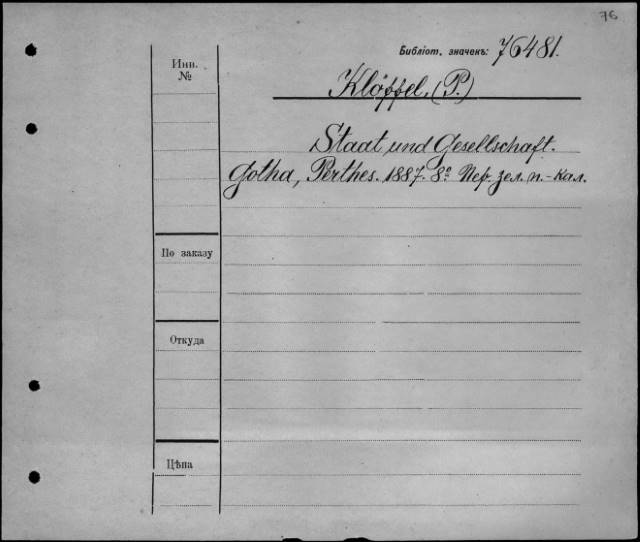 76
Библіот. значекъ: 76481.
Инв.
№
Klöffel, (P.)
Staat und Gesellschaft.
Gotha, Perthes. 1887. 8° Пер. зел. п.-кал.
По заказу
Откуда
Цѣна